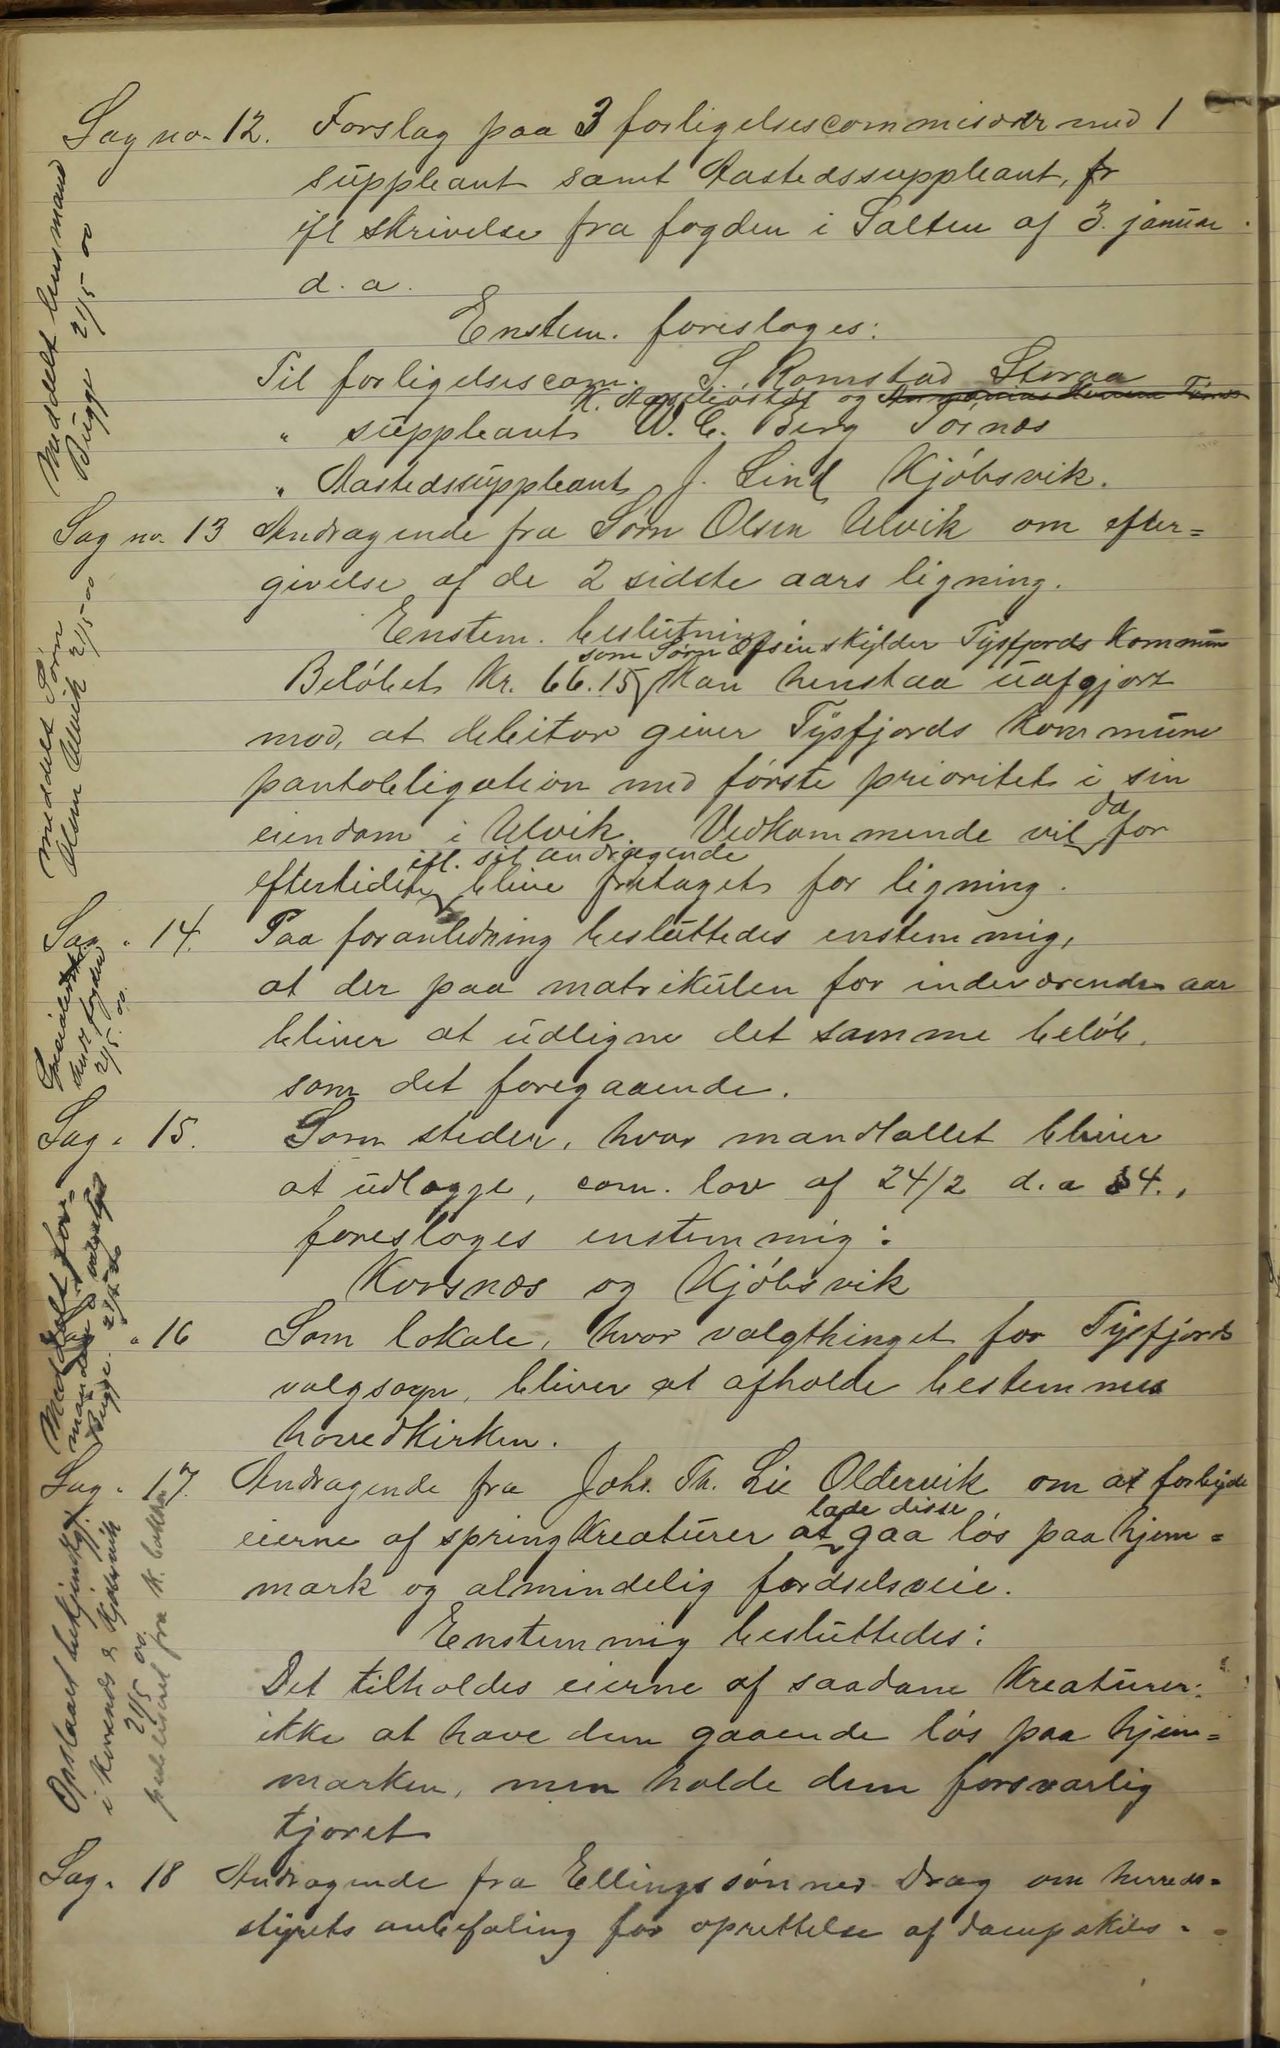 Sag no. 12. Forslag paa 3 forligelsescommisærer med 1
suppleant samt Aastedssuppleant, fr
ifl skrivelse fra fogden i Salten af 3. januar
d. a.
Enstem. foresloges:
Til forligelsescom. S. Romstad Storaa
og
" suppleant W. C. Berg Tørnæs
" Aastedssuppleant J. Lind Kjøbsvik.
Meddelt lensmand
Bugge 21/5 00
Sag no. 13 Andragende fra Sørn Olsen Ulvik om efter=
givelse af de 2 sidste aars ligning.
Enstem. beslutning:
som Sørn Olsen skylder Tysfjords Kommun
Beløbet Kr. 66.15 kan henstaa uafgjort
mod, at debitor giver Tysfjords Kommune
pantobligation med første prioritet i sin
eiendom i Ulvik. Vedkommende vil da for
ifl. sit andragende
eftertiden blive fritaget for ligning.
meddelt Sørn
Olsen Ulvik 21/5 00
Sag " 14. Paa foranledning besluttedes enstemmig,
at der paa matrikulen for indeværende aar
bliver at udligne det samme beløb,
som det foregaaende.
fogden
21/5. 00.
Sag " 15. Som steder, hvor mandtallet bliver
at udlægge, com. lov af 24/2 d. a § 4.,
foresloges enstemmig:
Korsnæs og Kjøbsvik
" 16 Som lokale, hvor valgthinget for Tysfjords
valgsogn, bliver at afholde bestemmes
hovedkirken.
Meddelt for-
manden i valgstyret
Bugge. 21/5 00
Sag " 17. Andragende fra Johs. Th. Lie Oldervik om at forbyde
lade disse
eierne af springkreaturer at gaa løs paa hjem=
mark og almindelig færdselsveie.
Enstemmig besluttedes:
Det tilholdes eierne af saadane Kreaturer:
ikke at have dem gaaende løs paa hjem=
marken, men holde dem forsvarlig
tjoret
Opslaaet bekjendtgj.
i Korsnæs & Kjøbsvik
21/5 00.
publiceret fra K. bakken
Sag " 18 Andragende fra Ellingsønner Drag om herreds=
styrets anbefaling for oprettelse af dampskibs=